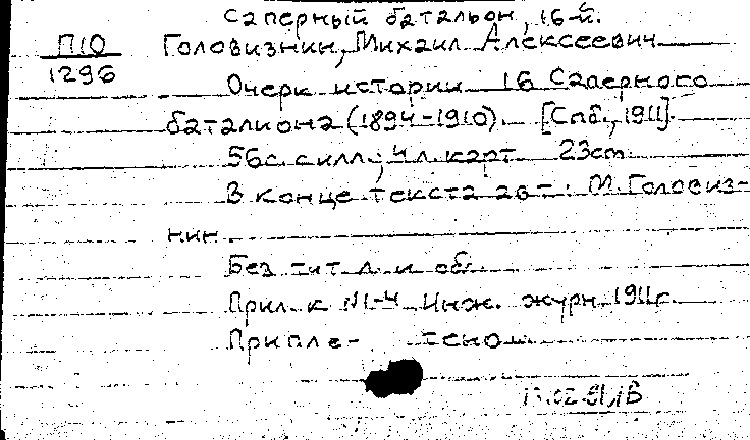 Саперный батальон, 16-й.
П10 Головизнин, Михаил Алексеевич
1296
Очерк истории 16 Саперного
баталиона (1894-1910). [Спб., 1911].
56с. с илл., 4 л. карт. 23cm
В конце текста авт.: М. Головиз-
нин.
Без тит. л. и обл.
Прил. к №1-4 Инж. журн. 1911г.